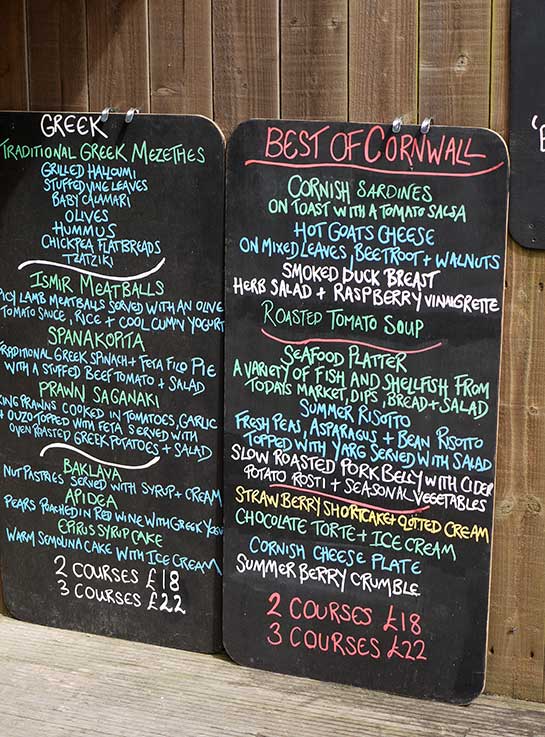 GREEK
TRADITIONAL GREEK MEZETHES
GRILLED HALLOUMI
STUFFED VINE LEAVES
BABY CALAMARI
OLIVES
HUMMUS
CHICKPEA FLATBREADS
TZATZIKI
ISMIR MEATBALLS
SPICY LAMB MEATBALLS SERVED WITH AN OLIVE
TOMATO SAUCE, RICE + COOL CUMIN YOGURT
SPANAKOPITA
TRADITIONAL GREEK SPINACH + FETA FILO PIE
WITH A STUFFED BEEF TOMATO + SALAD
PRAWN SAGANAKI
KING PRAWNS COOKED IN TOMATOES, GARLIC
+ OUZO TOPPED WITH FETA SERVED WITH
OVEN ROASTED GREEK POTATOES + SALAD
BAKLAVA
NUT PASTRIES SERVED WITH SYRUP + CREAM
APIDEA
PEARS POACHED IN RED WINE WITH GREEK
EPIRUS SYRUP CAKE
WARM SEMOLINA CAKE WITH ICE CREAM
2 COURSES £18
3 COURSES £22
BEST OF CORNWALL
CORNISH SARDINES
ON TOAST WITH A TOMATO SALSA
HOT GOATS CHEESE
ON MIXED LEAVES, BEETROOT + WALNUTS
SMOKED DUCK BREAST
HERB SALAD + RASPBERRY VINAIGRETTE
ROASTED TOMATO SOUP
SEAFOOD PLATTER
A VARIETY OF FISH AND SHELLFISH FROM
TODAYS MARKET, DIPS, BREAD + SALAD
SUMMER RISOTTO
FRESH PEAS, ASPARAGUS + BEAN RISOTTO
TOPPED WITH YARG SERVED WITH SALAD
SLOW ROASTED PORK BELLY WITH CIDER
POTATO ROSTI + SEASONAL VEGETABLES
STRAWBERRY SHORTCAKE + CLOTTED CREAM
CHOCOLATE TORTE + ICE CREAM
CORNISH CHEESE PLATE
SUMMER BERRY CRUMBLE
2 COURSES £18
3 COURSES £22